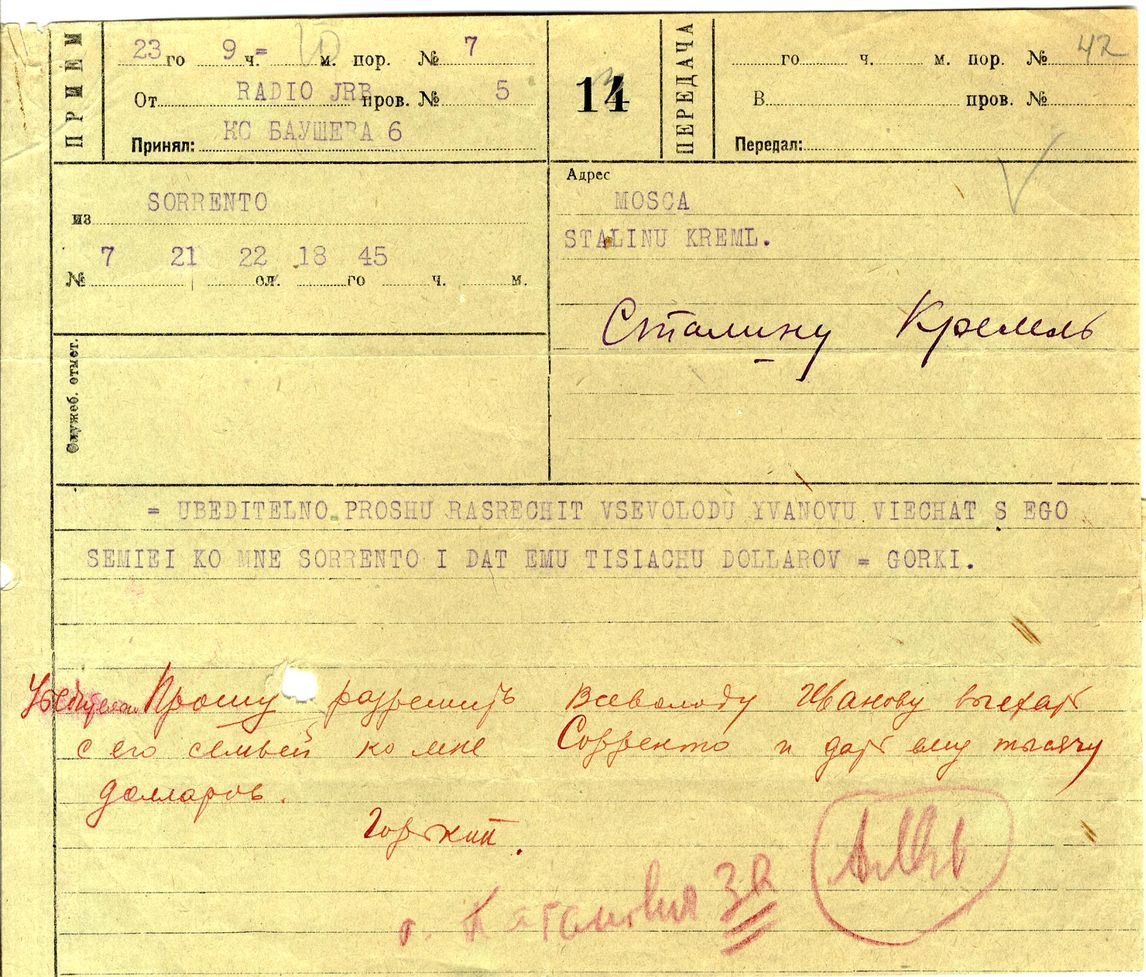 ПРИЕМ
23го 9 ч. м. пор. № 7
От RADIO JRB пров. № 5
Принял: КС БАУШЕВА 6
14
ПЕРЕДАЧА
го ч. м. пор. № 42
В пров. №
Передал:
из SORRENTO
№ 7 21 22 18 45
сл. го ч. м.
Служеб. отмет.
Адрес
MOSCA
STALINU KREML.
Сталину Кремль
= UBEDITELNO PROSHU RASRECHIT VSEVOLODU YVANOVU VIECHAT S EGO
SEMIEI KO MNE SORRENTO I DAT EMU TISIACHU DOLLAROV = GORKI.
Прошу разрешить Всеволоду Иванову выехать
с его семьей ко мне Сорренто и дать ему тысячу
долларов.
Горький.
т. Каганович за